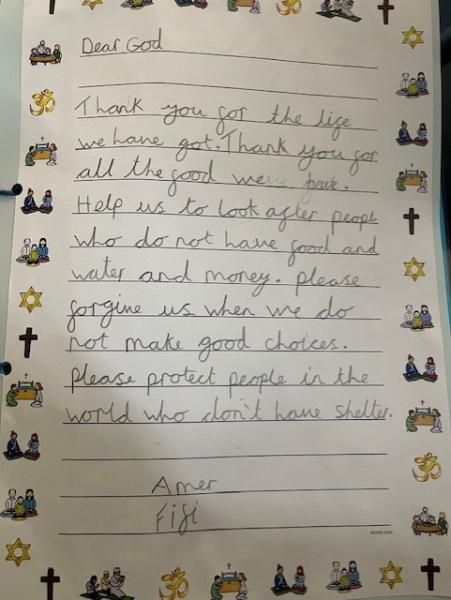 Dear God
Thank you for the life
we have got. Thank you for
all the food we
Help us to look after people
who do not have food and
water and money. please
forgive us when we do
not make good choices.
please protect people in the
world who don't have shelter.
Amen
Fifi